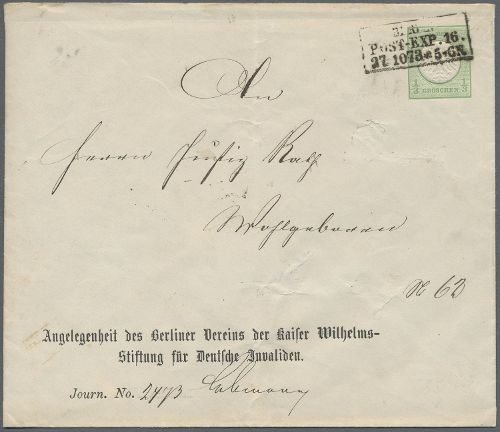 BERLIN
POST-EXP. 16.
27 10 73 * 5-6N.
1/3 GROSCHEN 1/3
An
Herrn Justiz Rath
Wohlgeboren
N 62
Angelegenheit des Berliner Vereins der Kaiser Wilhelms-
Stiftung für Deutsche Invaliden.
Journ. No. 2473